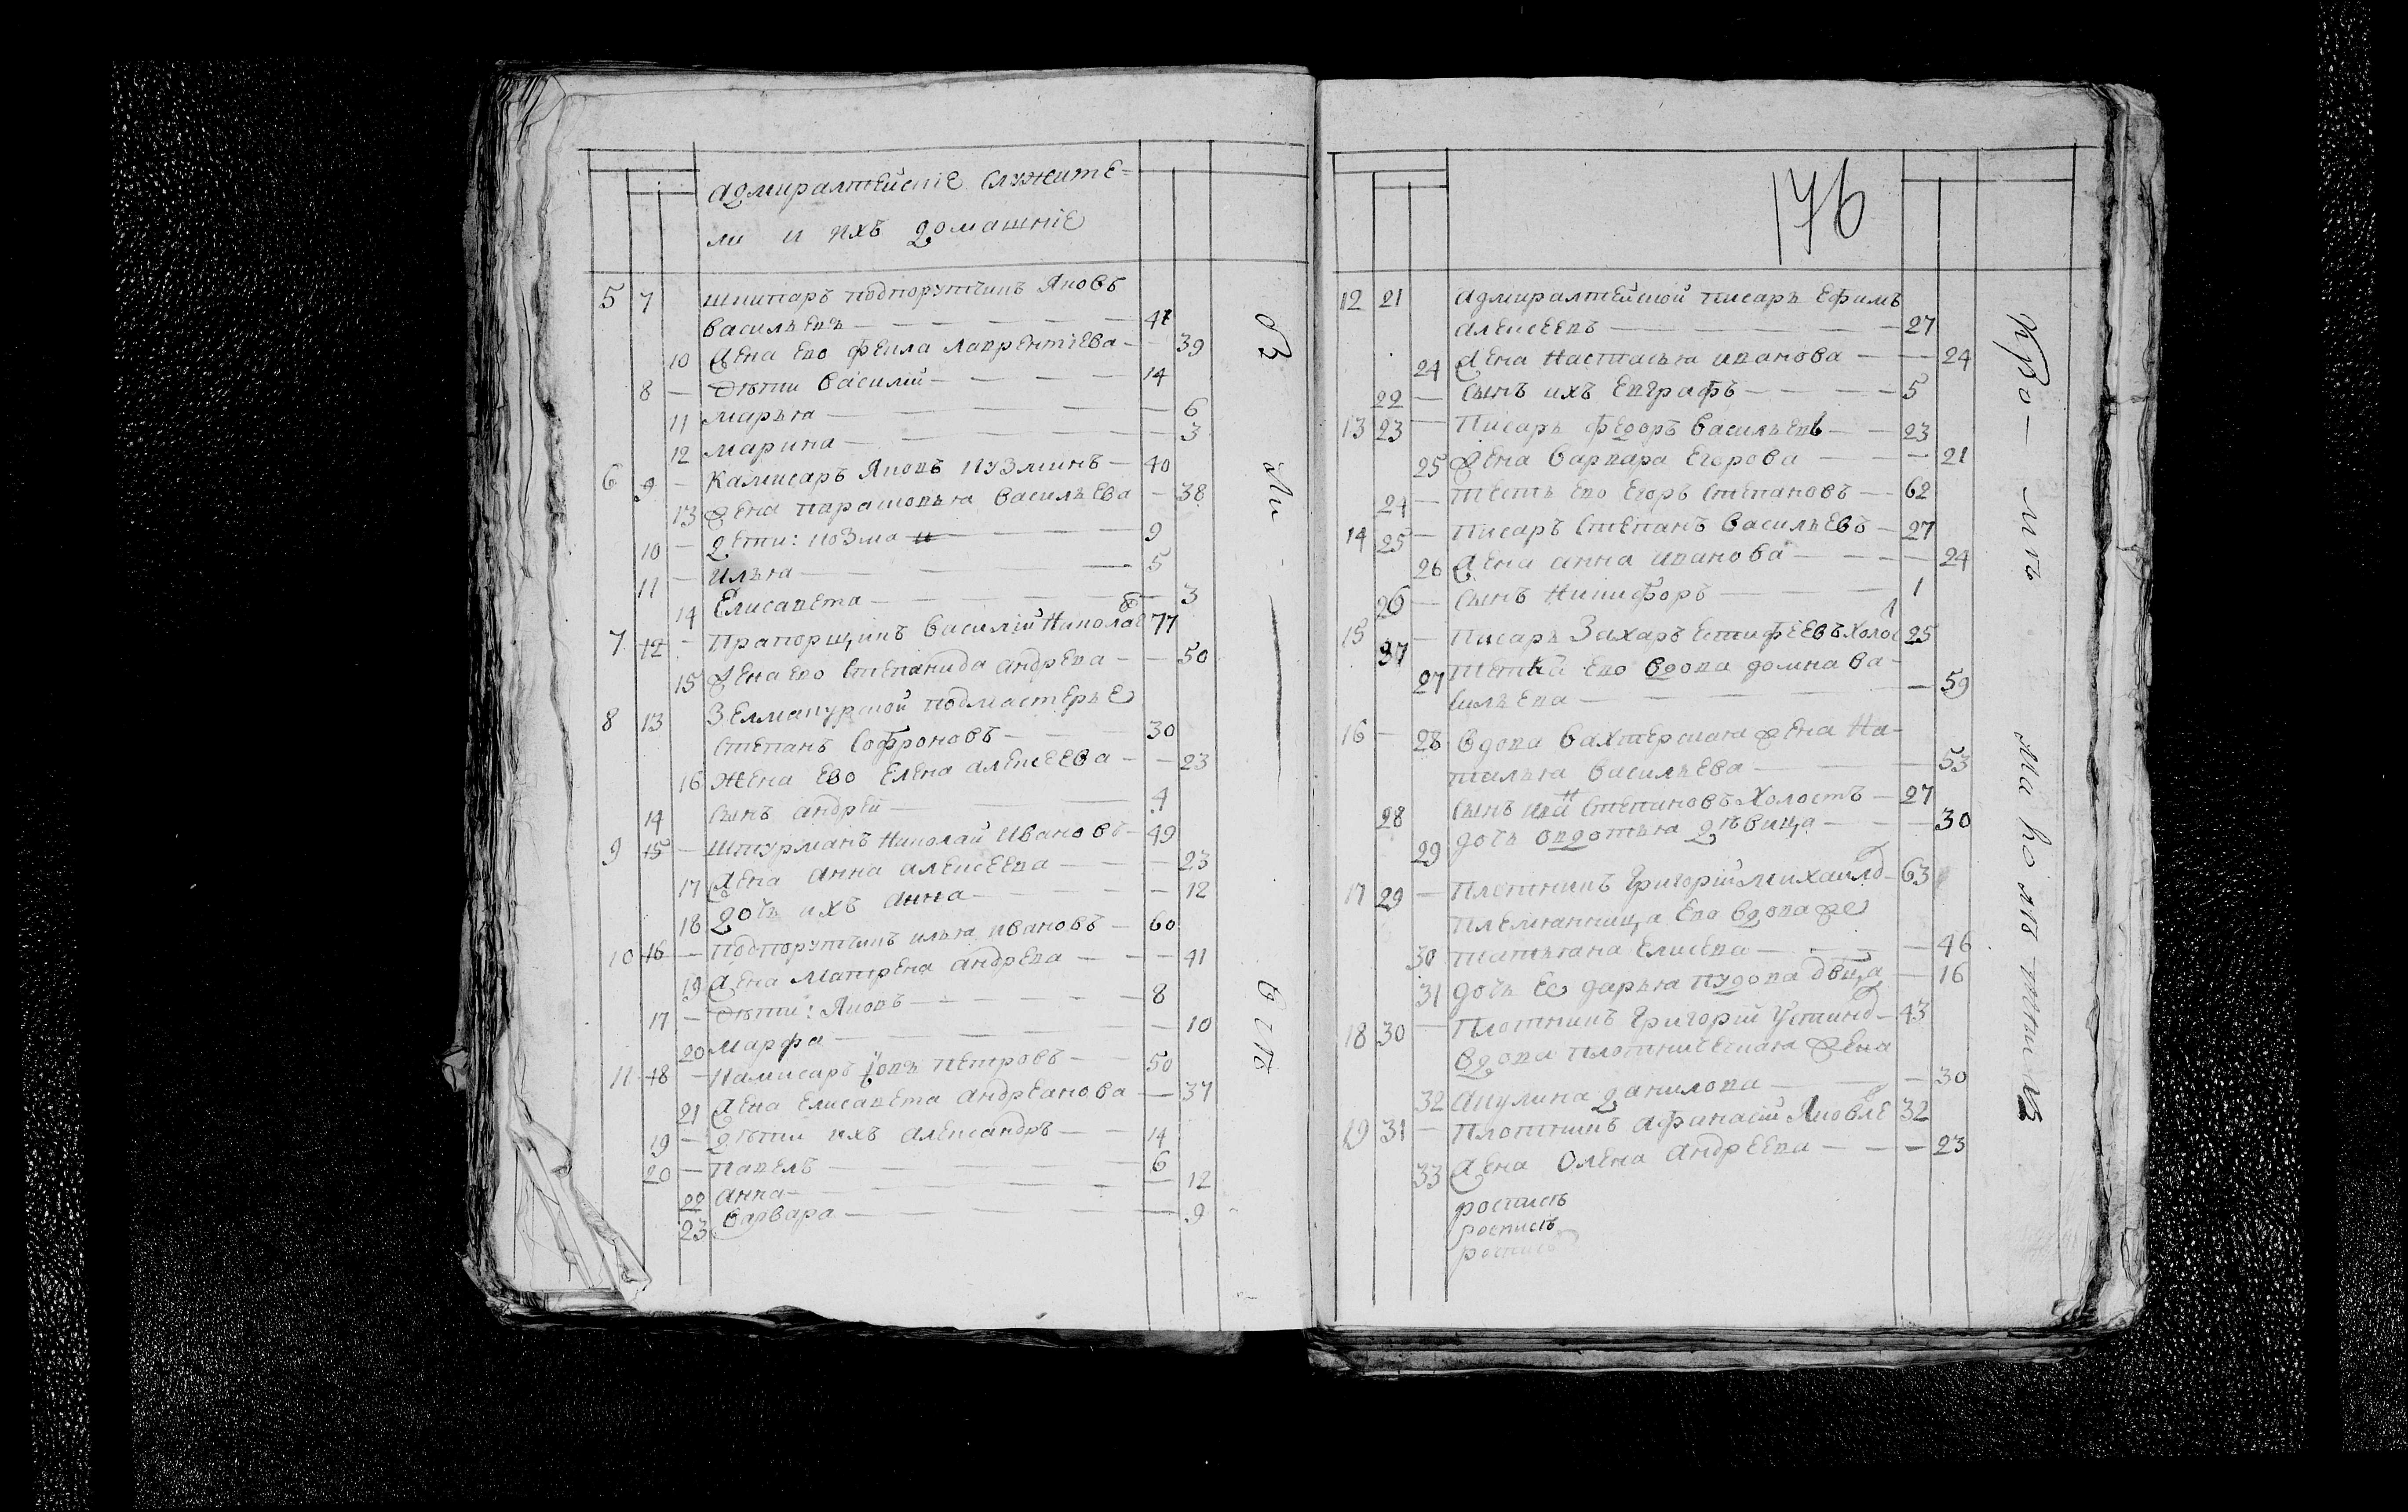 адмиралтейскіе служите=
ли и ихъ домашніе
5 7 шкипаръ подпорутчикъ Яковъ
васильевъ — 41
10 жена ево фекла лаврентіева — 39
8 — дѣти василій — 14
11 марья — 6
12 марина — 3
6 9 — камисаръ Яковъ кузминъ — 40
13 жена парасковья васильева — 38
10 — дети: козма — 9
11 — илья — 5
14 Елисавета — 3
7 12 — Прапорщикъ василій Николае 77
15 жена ево Степанида андрева — 50
8 13 Зелмакурской подмастерье
степанъ Софроновъ — 30
16 жена Ево Елена алексеева — 23
14 сынъ андрей — 4
9 15 — штурманъ Николай Ивановъ — 49
17 жена анна алексеева — 23
18 дочь ихъ анна — 12
10 16 — подпорутчикъ илья ивановъ — 60
19 жена Матрена андрева — 41
17 — дѣти: Яковъ — 8
20 марфа — 10
11 18 — камисаръ петровъ — 50
21 жена Елисавета андреанова — 37
19 — дѣти ихъ александръ — 14
20 — павелъ — 6
22 анна — 12
23 варвара — 9
176
12 21 адмиралтейской писарь Ефимъ
алексеевъ — 27
24 жена настасья иванова — 24
22 — сынъ ихъ Евграфъ — 5
13 23 — Писарь федоръ васильевъ — 23
25 жена варвара Егорова — 21
24 — тесть ево Егоръ Степановъ — 62
14 25 — писаръ Степанъ васильевъ — 27
26 жена анна иванова — 24
26 — сынъ Никифоръ — 1
15 37 — писарь Захаръ Естифеевъ холос 25
27 тетка ево вдова домна ва-
сильева — 59
16 — 28 вдова вахтерская жена На-
талья васильева — 53
28 сынъ Степановъ холостъ — 27
29 дочь овдотья дѣвица — 30
17 29 — плотникъ григорій михаило — 63
племянница Ево вдова же
30 татьяна Елисева — 46
31 дочь Ее дарья пудова двца — 16
18 30 — плотникъ григорій Устино — 43
вдова плотническая жена
32 акулина данилова — 30
19 31 — плотникъ афанасій Яковле 32
33 жена Олена андреева — 23
роспись
роспись
роспись